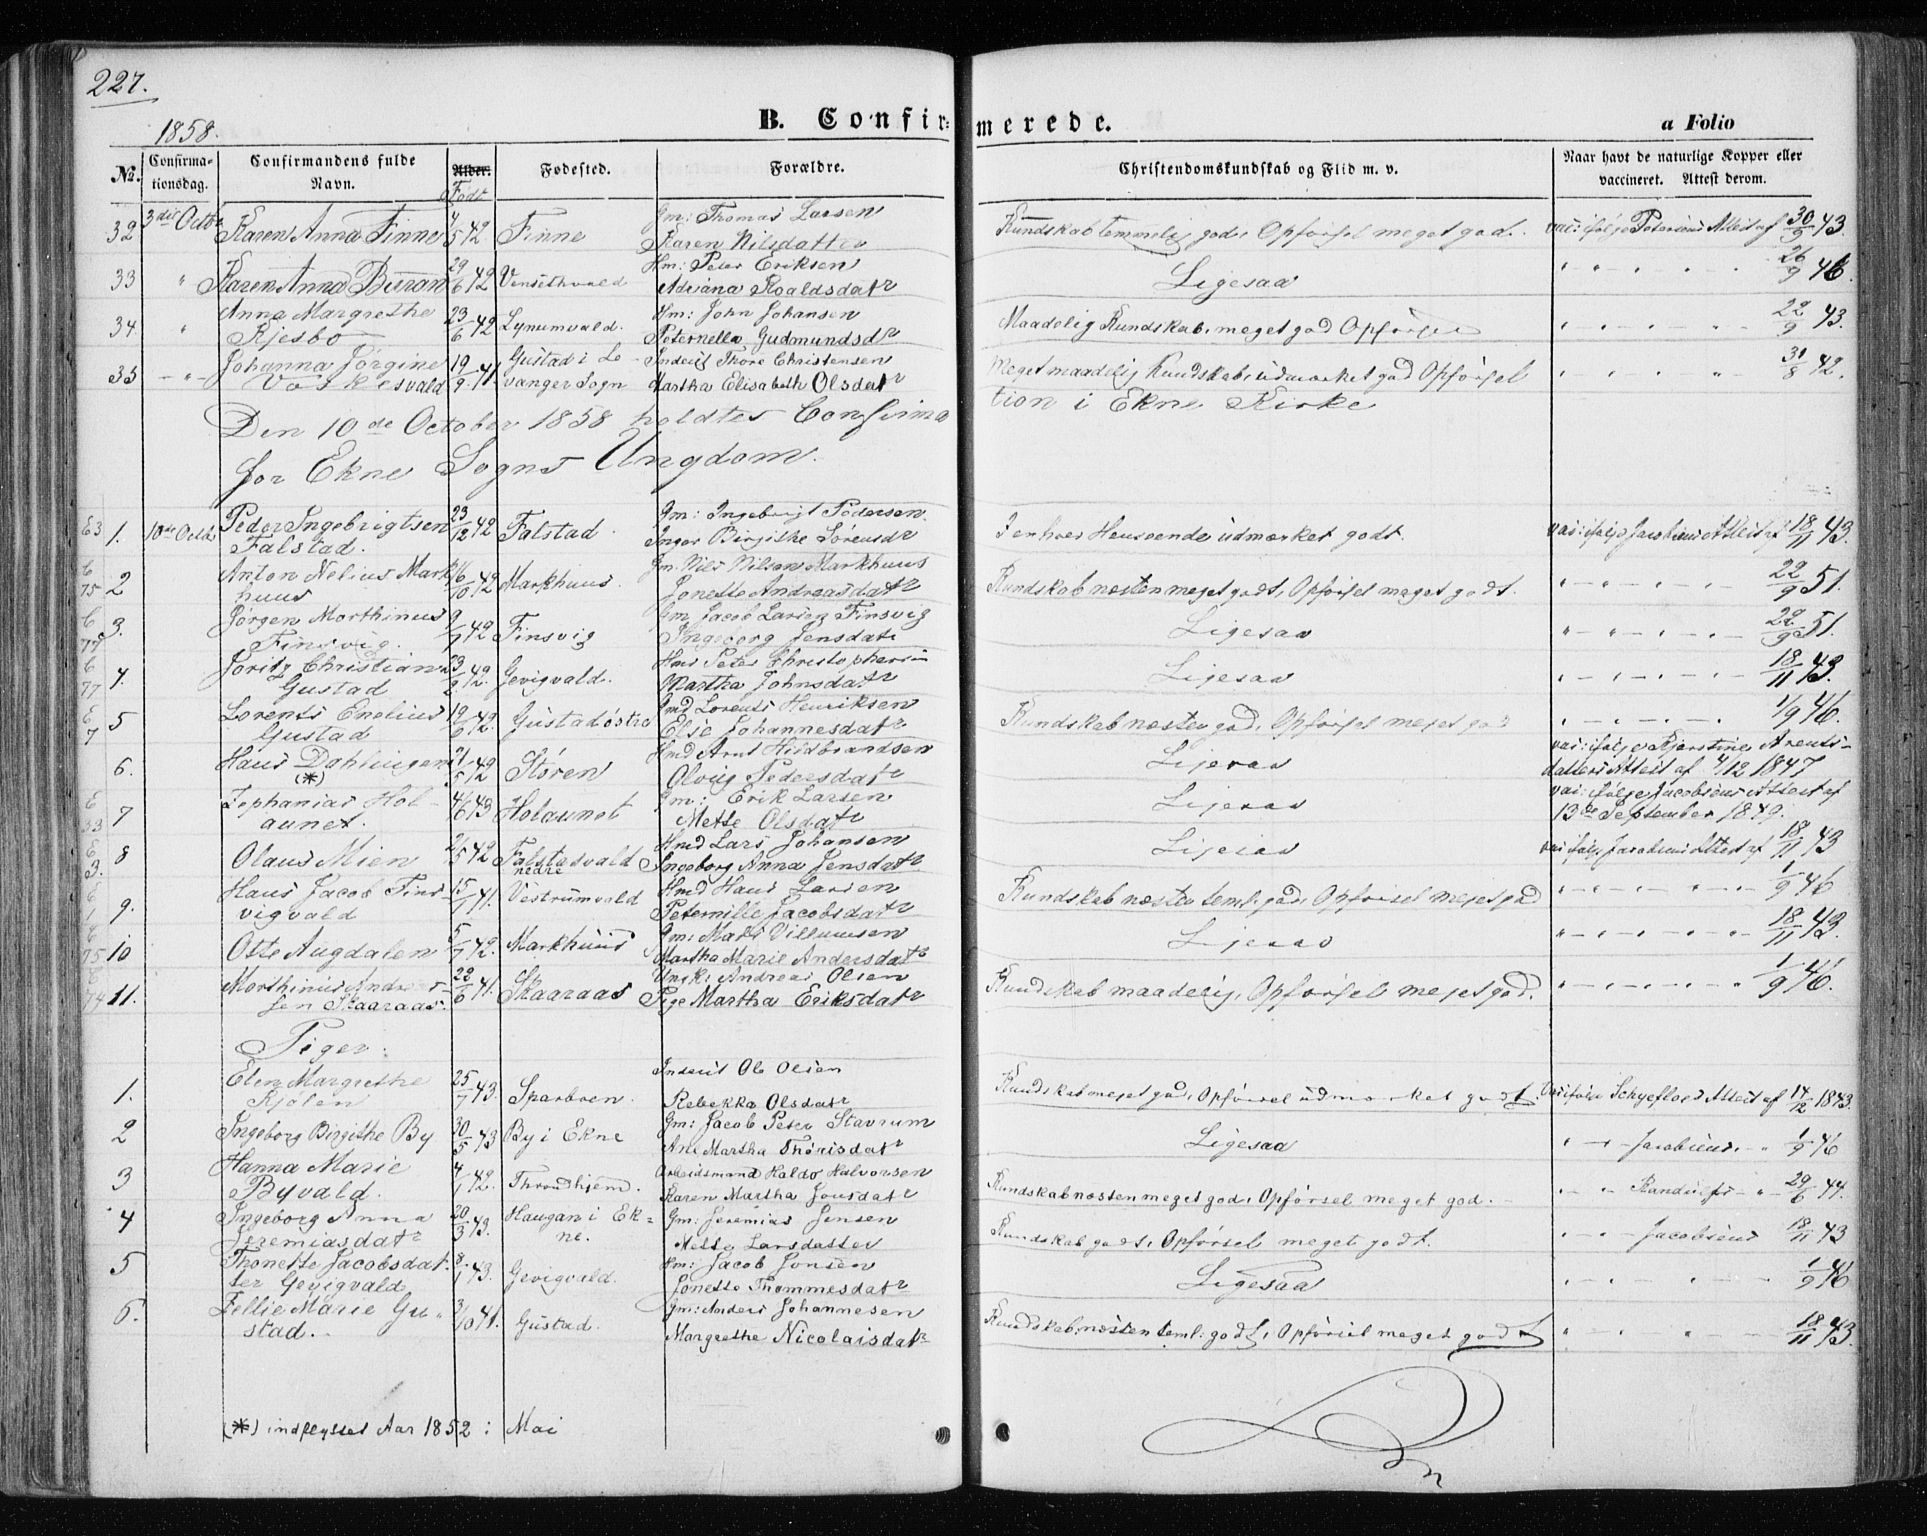 227.
1858.
B. Confirmerede.
a Folio
No. Confirmationsdag. Confirmandens fulde Navn. Alder. Født Fødested. Forældre. Christendomskundskab og Flid m. v. Naar havt de naturlige Kopper eller vaccineret. Attest derom.
32 3die Octbr Karen Anna Finne 4/5 42 Finne Gm: Thomas Larsen
Karen Nilsdatter Kundskab temmelig god, Opførsel meget god. vac: ifølge Petersens Attest af 30/9 43.
33 " Karen Anna Buran 29/6 42 Vensethvald Hm: Peter Eriksen
Adriana Roaldsdatr Ligesaa " " " " " 26/9 46.
34. " Anna Margrethe
Kjesbo 23/6 42 Lynumvald. Hm: John Johansen
Peternella Gudmundsdr Maadelig Kundskab, meget god Opførsel " " " " " 22/9 43.
35 " Johanna Jørgine
Voskesvald 19/9 41. Gustad i Levanger Sogn Inderst Thore Christensen
Martha Elisabeth Olsdatr Meget maadelig Kundskab, udmærket god Opførsel " " " " 31/8 42.
Den 10de October 1858 holdtes Confirmation i Ekne Kirke
for Ekne Sogns Ungdom.
1. 10de Octb Peder Ingebrigtsen
Falstad. 23/12 42 Falstad. Gm: Ingebrigt Pedersen.
Inger Birgithe Sørensdr I enhver Henseende udmærket godt. vac: ifølge Jacobsens Attest af 18/11 43.
2 Anton Nelius Markhuus 16/10 42 Markhuus. Gm. Nils Nilsen Markhuus
Jonette Andreasdatr Kundskab næsten meget godt, Opførsel meget godt. " " " " " 22/9 51.
3. Jørgen Morthinus
Finsvig. 9/7 42 Finsvig Gm Jacob Larsen Finsvig
Ingeborg Jensdatr Ligesaa " " " " 22/9 51.
4. Joritz Christian
Gustad 23/2 42. Gevigvald. Hmd Peter Christophersen
Martha Johnsdatr Ligesaa " " " " 18/11 43.
5 Lorents Enelius
Gustad 19/6 42. Gustadøstre Gmd Lorents Henriksen
Else Johannesdatr Kundskab næsten god, Opførsel meget god " " " " 1/9 46.
6. Hans Dahlingen
(*) 21/5 42 Støren Hmd Arnt Hildbrandsen
Olvug Pedersdatr Ligesaa vac: ifølge Kjerstine Arentsdatters Attest af 4/12 1847
7 Zephanias Holaunet. 4/6 43 Holaunet Gm: Erik Larsen
Mette Olsdatr Ligesaa vac: ifølge Jacobsens Attest af
13de September 1849.
8 Olaus Mien 2/5 42 Falstadvald
nedre Hmd Lars Johansen
Ingeborg Anna Jensdatr Ligesaa vac ifølge Jacobsens Attest af 18/11 43
9. Hans Jacob Finsvigvald 15/7 41. Vestrumvald Hmd Hans Larsen
Peternille Jacobsdatr Kundskab næsten teml. god, Opførsel meget god " " " " 1/9 46
10 Otte Augdalen 5/7 42. Markhuus Gm: Mats Villumsen
Martha Marie Andersdatr Ligesaa " " " " " 18/11 43.
11. Morthinus Andreassen Skaaraas. 22/6 41. Skaaraas Ungk: Andreas Olsen
Pige Martha Eriksdatr Kundskab maadelig, Opførsel meget god. " " " " " 1/9 46.
Piger.
1. Elen Margrethe
Kjølen 25/7 43. Sparboen. Inderst Ole Olsen
Rebekka Olsdatr Kundskab meget god, Opførsel udmærket godt. vac: ifølge Schjefloes Attest af 14/12 1843.
2 Ingeborg Birgithe By 30/5 43 By i Ekne Gm: Jacob Peter Stavrum
Ane Martha Thorisdatr Ligesaa " " Jacobsens " 1/9 46
3 Hanna Marie
Byvald. 4/1 42. Throndhjem. Arbeidsmand Haldo Halvorsen
Karen Martha Jonsdatr Kundskab næsten meget god, Opførsel meget god. " " " " 29/6 44.
4 Ingeborg Anna
Jeremiasdatr 20/3 43. Haugan i Ekne. Gm: Jeremias Jensen
Mette Larsdatter Kundskab godt, Opførsel meget godt. " " Jacobsens 18/11 43
5 Thonette Jacobsdatter Gevigvald 8/1 43. Gevigvald. Hm: Jacob Jonsen
Jonette Thommesdatr Ligesaa " " " " 1/9 46
6. Zellie Marie Gustad. 3/10 41. Gustad. Gm: Anders Johannesen
Margrethe Nicolaisdatr Kundskab næsten teml: godt, Opførsel meget godt " " " " 18/11 43.
(*) indflyttet Aar 1852 i Mai